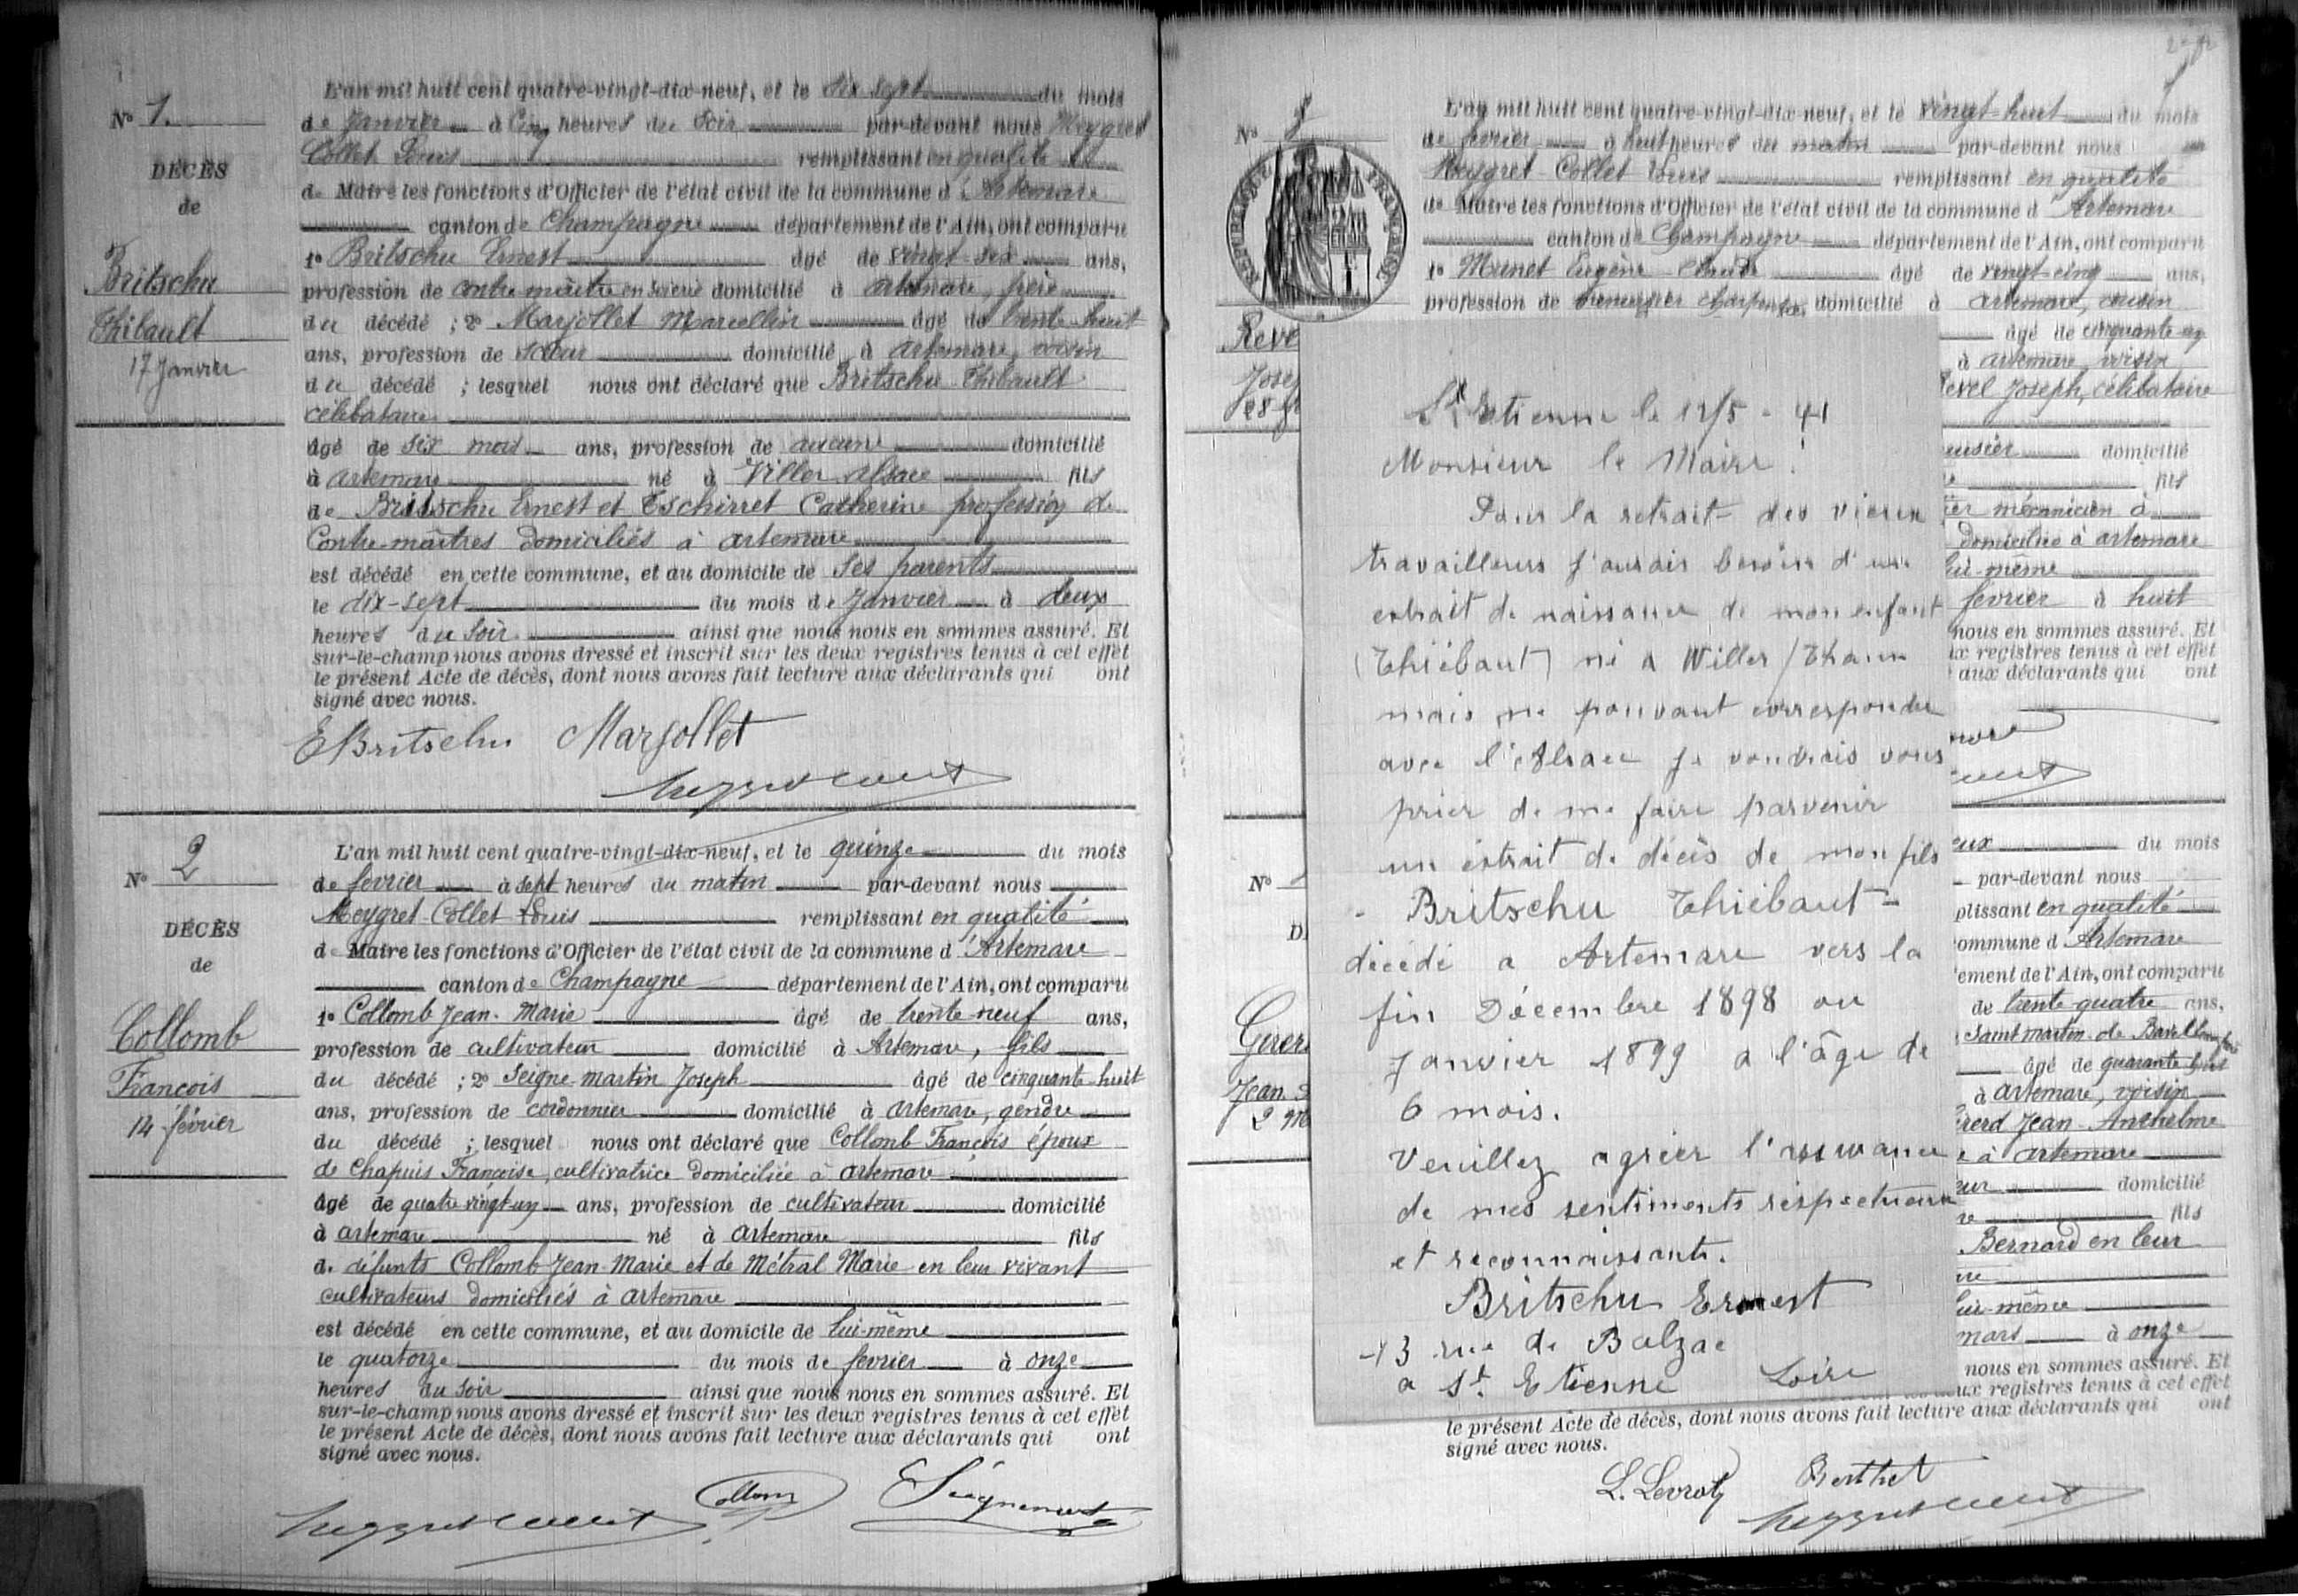 No 1.
DÉCÈS
de
Britschu
Thibault
17 Janvier
L'an mil huit cent quatre-vingt-dix-neuf, et le dix sept du mois
de Janvier à Cinq heures du Soir par-devant nous Meygret
Collet Louis remplissant en qualité
de Maire les fonctions d'Officier de l'état civil de la commune d'Artemare
canton de Champagne département de l'Ain, ont comparu
1o Britschu Ernest âgé de vingt-six ans,
profession de contre maître en soierie domicilié à artemare, père
du décédé ; 2o Marjollet Marcellin âgé de trente-huit
ans, profession de domicilié à artemare, voisin
du décédé ; lesquel nous ont déclaré que Britschu Thibault
célibataire
âgé de six mois ans, profession de aucune domicilié
à artemare né à Viller Alsace fils
de Britschu Ernest et Tschirret Catherine profession de
Contre-maîtres domiciliés à artemare
est décédé en cette commune, et au domicile de Ses parents
le dix-sept du mois de Janvier à deux
heures du Soir ainsi que nous nous en sommes assuré. Et
sur-le-champ nous avons dressé et inscrit sur les deux registres tenus à cet effet
le présent Acte de décès, dont nous avons fait lecture aux déclarants qui ont
signé avec nous.
EBritschu Marjollet
No 2
DÉCÈS
de
Collomb
François
14 février
L'an mil huit cent quatre-vingt-dix-neuf, et le quinze du mois
de février à sept heures du matin par-devant nous
Meygret-Collet Louis remplissant en qualité
de Maire les fonctions d'Officier de l'état civil de la commune d'Artemare
canton de Champagne département de l'Ain, ont comparu
1o Collomb Jean-Marie âgé de trente-neuf ans,
profession de cultivateur domicilié à Artemare, fils
du décédé ; 2o Seigne-martin Joseph âgé de cinquante-huit
ans, profession de cordonnier domicilié à artemare, gendre
du décédé ; lesquel nous ont déclaré que Collomb François époux
de Chapuis Françoise, cultivatrice domiciliée à artemare
âgé de quatre vingt-un ans, profession de cultivateur domicilié
à artemare né à artemare fils
de défunts Collomb Jean Marie et de Métral Marie en leur vivant
cultivateurs domiciliés à artemare
est décédé en cette commune, et au domicile de lui-même
le quatorze du mois de février à onze
heures du Soir ainsi que nous nous en sommes assuré. Et
sur-le-champ nous avons dressé et inscrit sur les deux registres tenus à cet effet
le présent Acte de décès, dont nous avons fait lecture aux déclarants qui ont
signé avec nous.
Collomb
No 3
RÉPUBLIQUE FRANÇAISE
Reve
Josep
28
L'an mil huit cent quatre-vingt-dix-neuf, et le vingt-huit du mois
de février à huit heures du matin par-devant nous
Meygret-Collet Louis remplissant en qualité
de Maire les fonctions d'Officier de l'état civil de la commune d'Artemare
canton de Champagne département de l'Ain, ont comparu
1o Munet Eugène Claude âgé de vingt-cinq ans,
profession de menuisier charpentier domicilié à artemare, cousin
âgé de cinquante-
à artemare voisin
evel Joseph, célibataire
nuisier domicilié
fils
er mécanicien à
domicilié à artemare
lui-même
février à huit
nous en sommes assuré. Et
ux registres tenus à cet effet
aux déclarants qui ont
St Etienne le 12/5 - 41
Monsieur le Maire !
Pour la retraite des vieux
travailleurs j'aurais besoin d'un
extrait de naissance de mon enfant
(Thiébaut) né a Willer / Thann
mais ne pouvant correspondre
avec l'Alsace je voudrais vous
prier de me faire parvenir
un extrait de décès de mon fils
- Britschu Thiébaut -
décédé a Artemare vers la
fin Décembre 1898 ou
Janvier 1899 a l'âge de
6 mois.
Veuillez agréer l'assurance
de mes sentiments respectueux
et reconnaissants.
Britschu Ernest
13 rue de Balzac
a St. Etienne Loire
No
D
Gerer
Jean
2 M
eux du mois
par-devant nous
plissant en qualité
ommune d'Artemare
ement de l'Ain, ont comparu
de trente-quatre ans,
Saint martin de Bavel
âgé de quarante huit
à artemare, voisin
rerd Jean-Anthelme
à artemare
eur domicilié
fils
Bernard en leur
lui-même
mars à onze
nous en sommes assuré. Et
eux registres tenus à cet effet
le présent Acte de décès, dont nous avons fait lecture aux déclarants qui ont
signé avec nous.
L. Levrot Berthet